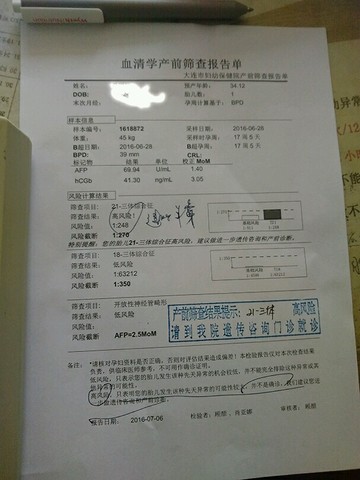 血清学产前筛查报告单
大连市妇幼保健院产前筛查报告单
姓名: 预产年龄: 34.12
DOB: 胎儿数: 1
末次月经: 孕周计算基于: BPD
样本信息
样本编号: 1618872 采样日期: 2016-06-28
体重: 45 kg 采样时孕周: 17 周 6 天
B超日期: 2016-06-28 B超孕周: 17 周 6 天
BPD: 39 mm CRL:
标记物 结果 单位 校正 MoM
AFP 69.94 U/mL 1.40
hCGb 41.30 ng/mL 3.05
风险计算结果
筛查项目: 21-三体综合征
筛查结果: 高风险!
风险值: 1:248
风险截断 1:270
特别提醒: 您的胎儿21-三体综合征高风险, 建议做进一步遗传咨询和产前诊断。
筛查项目: 18-三体综合征
筛查结果: 低风险
风险值: 1:63212
风险截断 1:350
筛查项目: 开放性神经管畸形
筛查结果: 低风险
风险值:
风险截断 AFP=2.5MoM
产前筛查结果提示: 21-三体 高风险
请到我院遗传咨询门诊就诊
备注: *请核对孕妇资料是否正确, 否则对评估结果造成偏差! 本检验报告仅对本次检查结果
负责, 供临床医师参考, 不可用作确诊证明。
低风险, 只表示您的胎儿发生该种先天异常的机会较低, 并不能完全排除这种异常或其
他异常的可能性。
高风险, 只表明您的胎儿发生该种先天异常的可能性较大, 并不是确诊, 我们建议您进
一步做遗传咨询和产前诊断。
报告日期: 2016-07-06 检验者: 审核者: